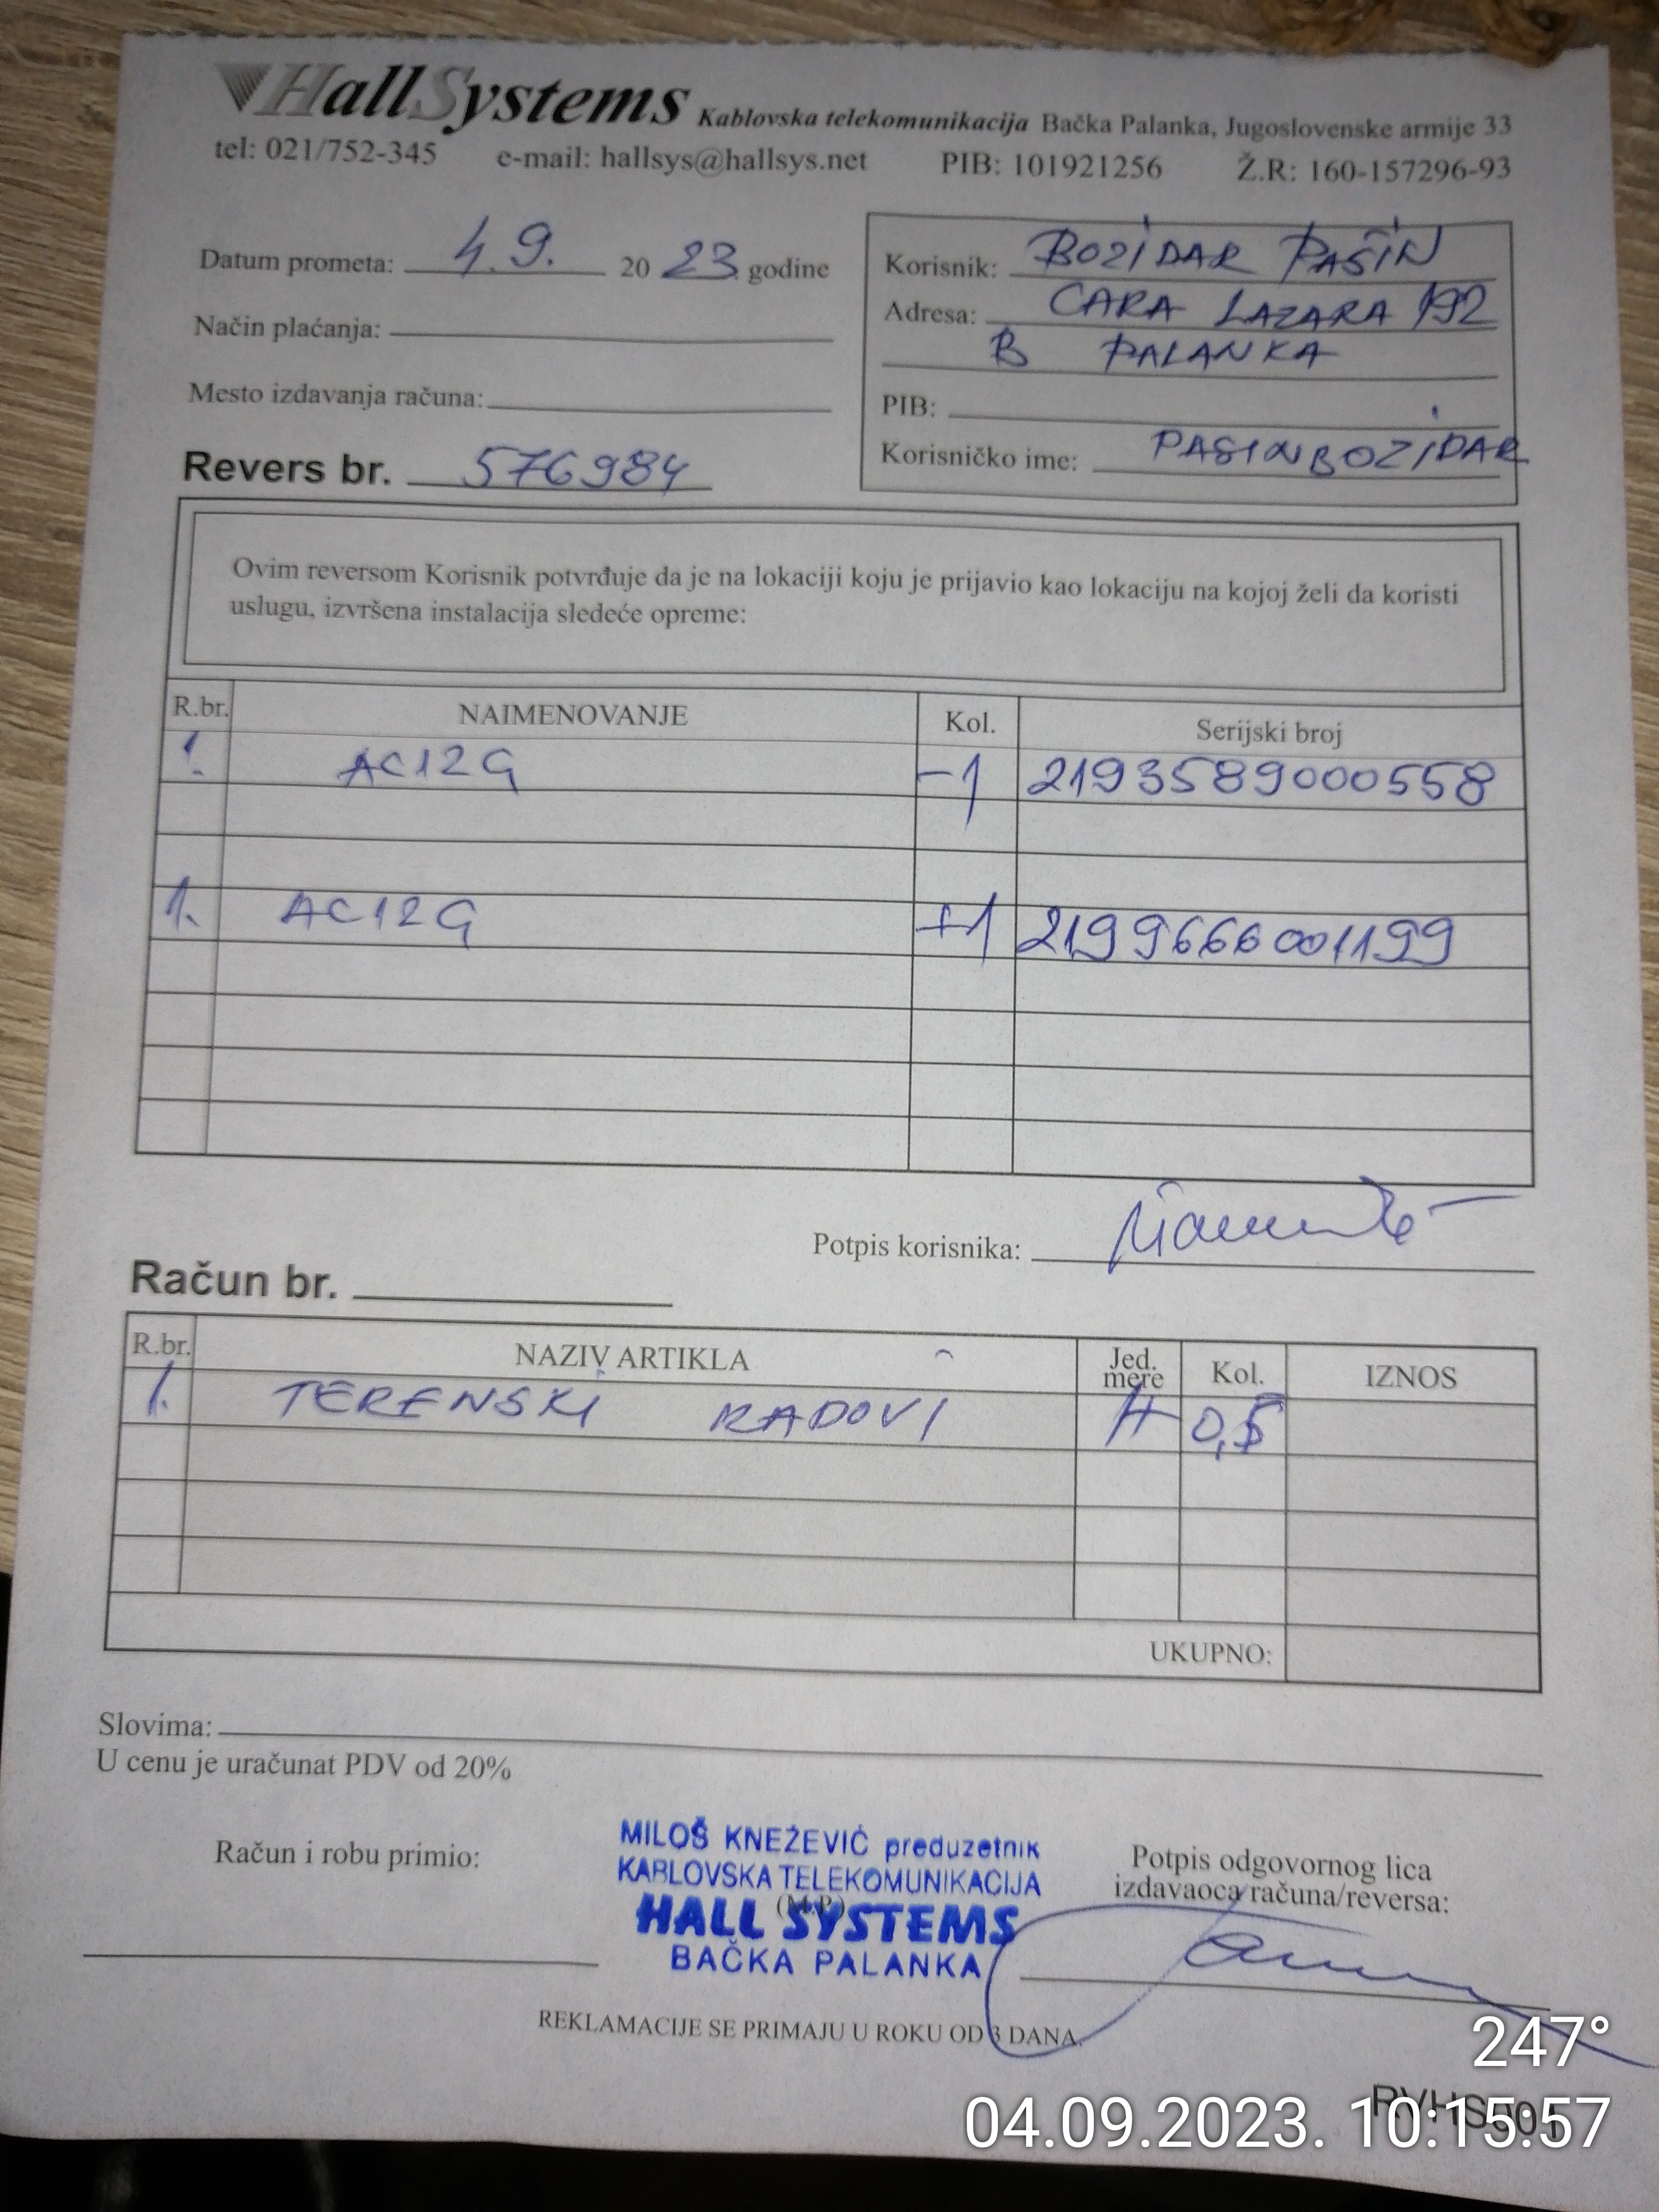 HallSystems Kablovska telekomunikacija Bačka Palanka, Jugoslovenske armije 33
tel: 021/752-345 e-mail: hallsys@hallsys.net PIB: 101921256 Ž.R: 160-157296-93
Datum prometa: 4.9. 2023 godine
Način plaćanja:
Mesto izdavanja računa:
Revers br. 576984
Korisnik: BOZIDAR PAŠIN
Adresa: CARA LAZARA 192
B PALANKA
PIB:
Korisničko ime: PASINBOZIDAR
Ovim reversom Korisnik potvrđuje da je na lokaciji koju je prijavio kao lokaciju na kojoj želi da koristi
uslugu, izvršena instalacija sledeće opreme:
R.br. NAIMENOVANJE Kol. Serijski broj
1. AC12G -1 2193589000558
1. AC12G +1 2199666001199
Potpis korisnika:
Račun br.
R.br. NAZIV ARTIKLA Jed. mere Kol. IZNOS
1. TERENSKI RADOVI H 0,5
UKUPNO:
Slovima:
U cenu je uračunat PDV od 20%
Račun i robu primio:
MILOŠ KNEŽEVIĆ preduzetnik
KABLOVSKA TELEKOMUNIKACIJA
(M.P.)
HALL SYSTEMS
BAČKA PALANKA
Potpis odgovornog lica
izdavaoca računa/reversa:
REKLAMACIJE SE PRIMAJU U ROKU OD 3 DANA.
247°
RVHS001
04.09.2023. 10:15:57